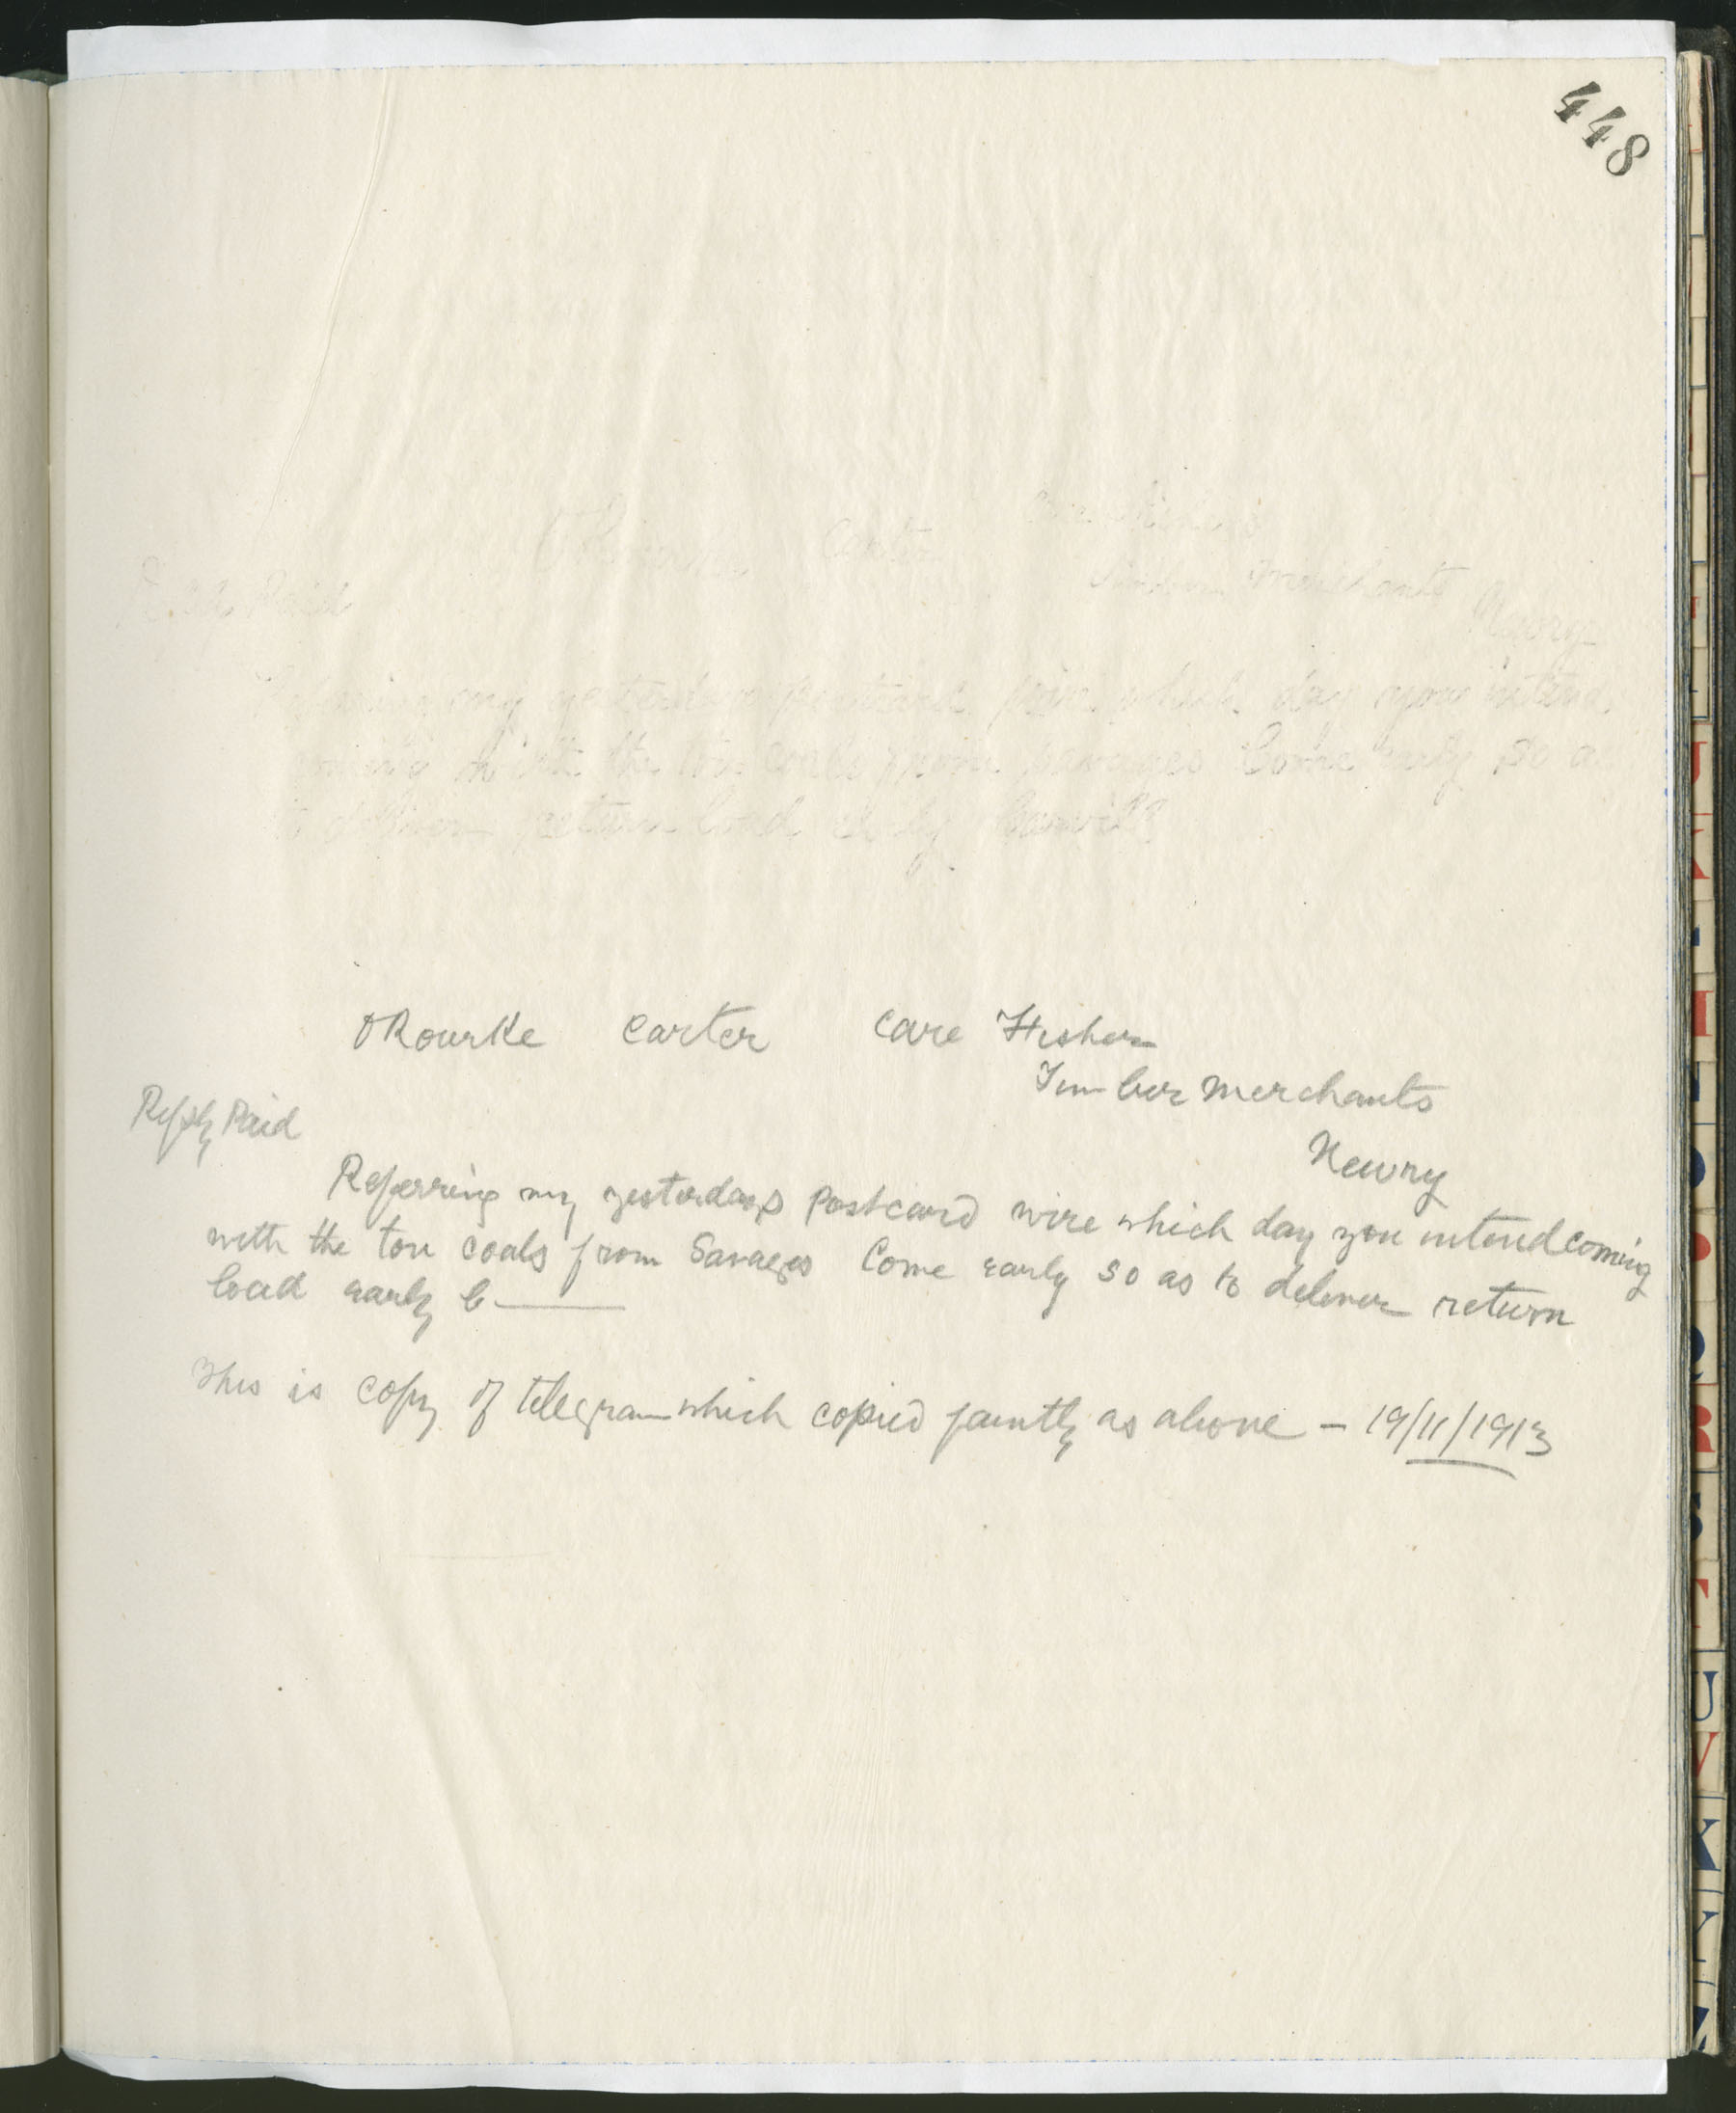 448
Carter
Merchants
Newry
Reply Paid
my yesterdays postcard wire which day you intend
coming with the ton coals from Savages Come early so as
to deliver return load early
ORourke Carter Care Fishers
Timber merchants
Reply Paid
Newry
Referring my yesterdays postcard wire which day you intend coming
with the ton coals from Savages Come early so as to deliver return
load early C———
This is copy of telegram which copied faintly as above – 19/11/1913